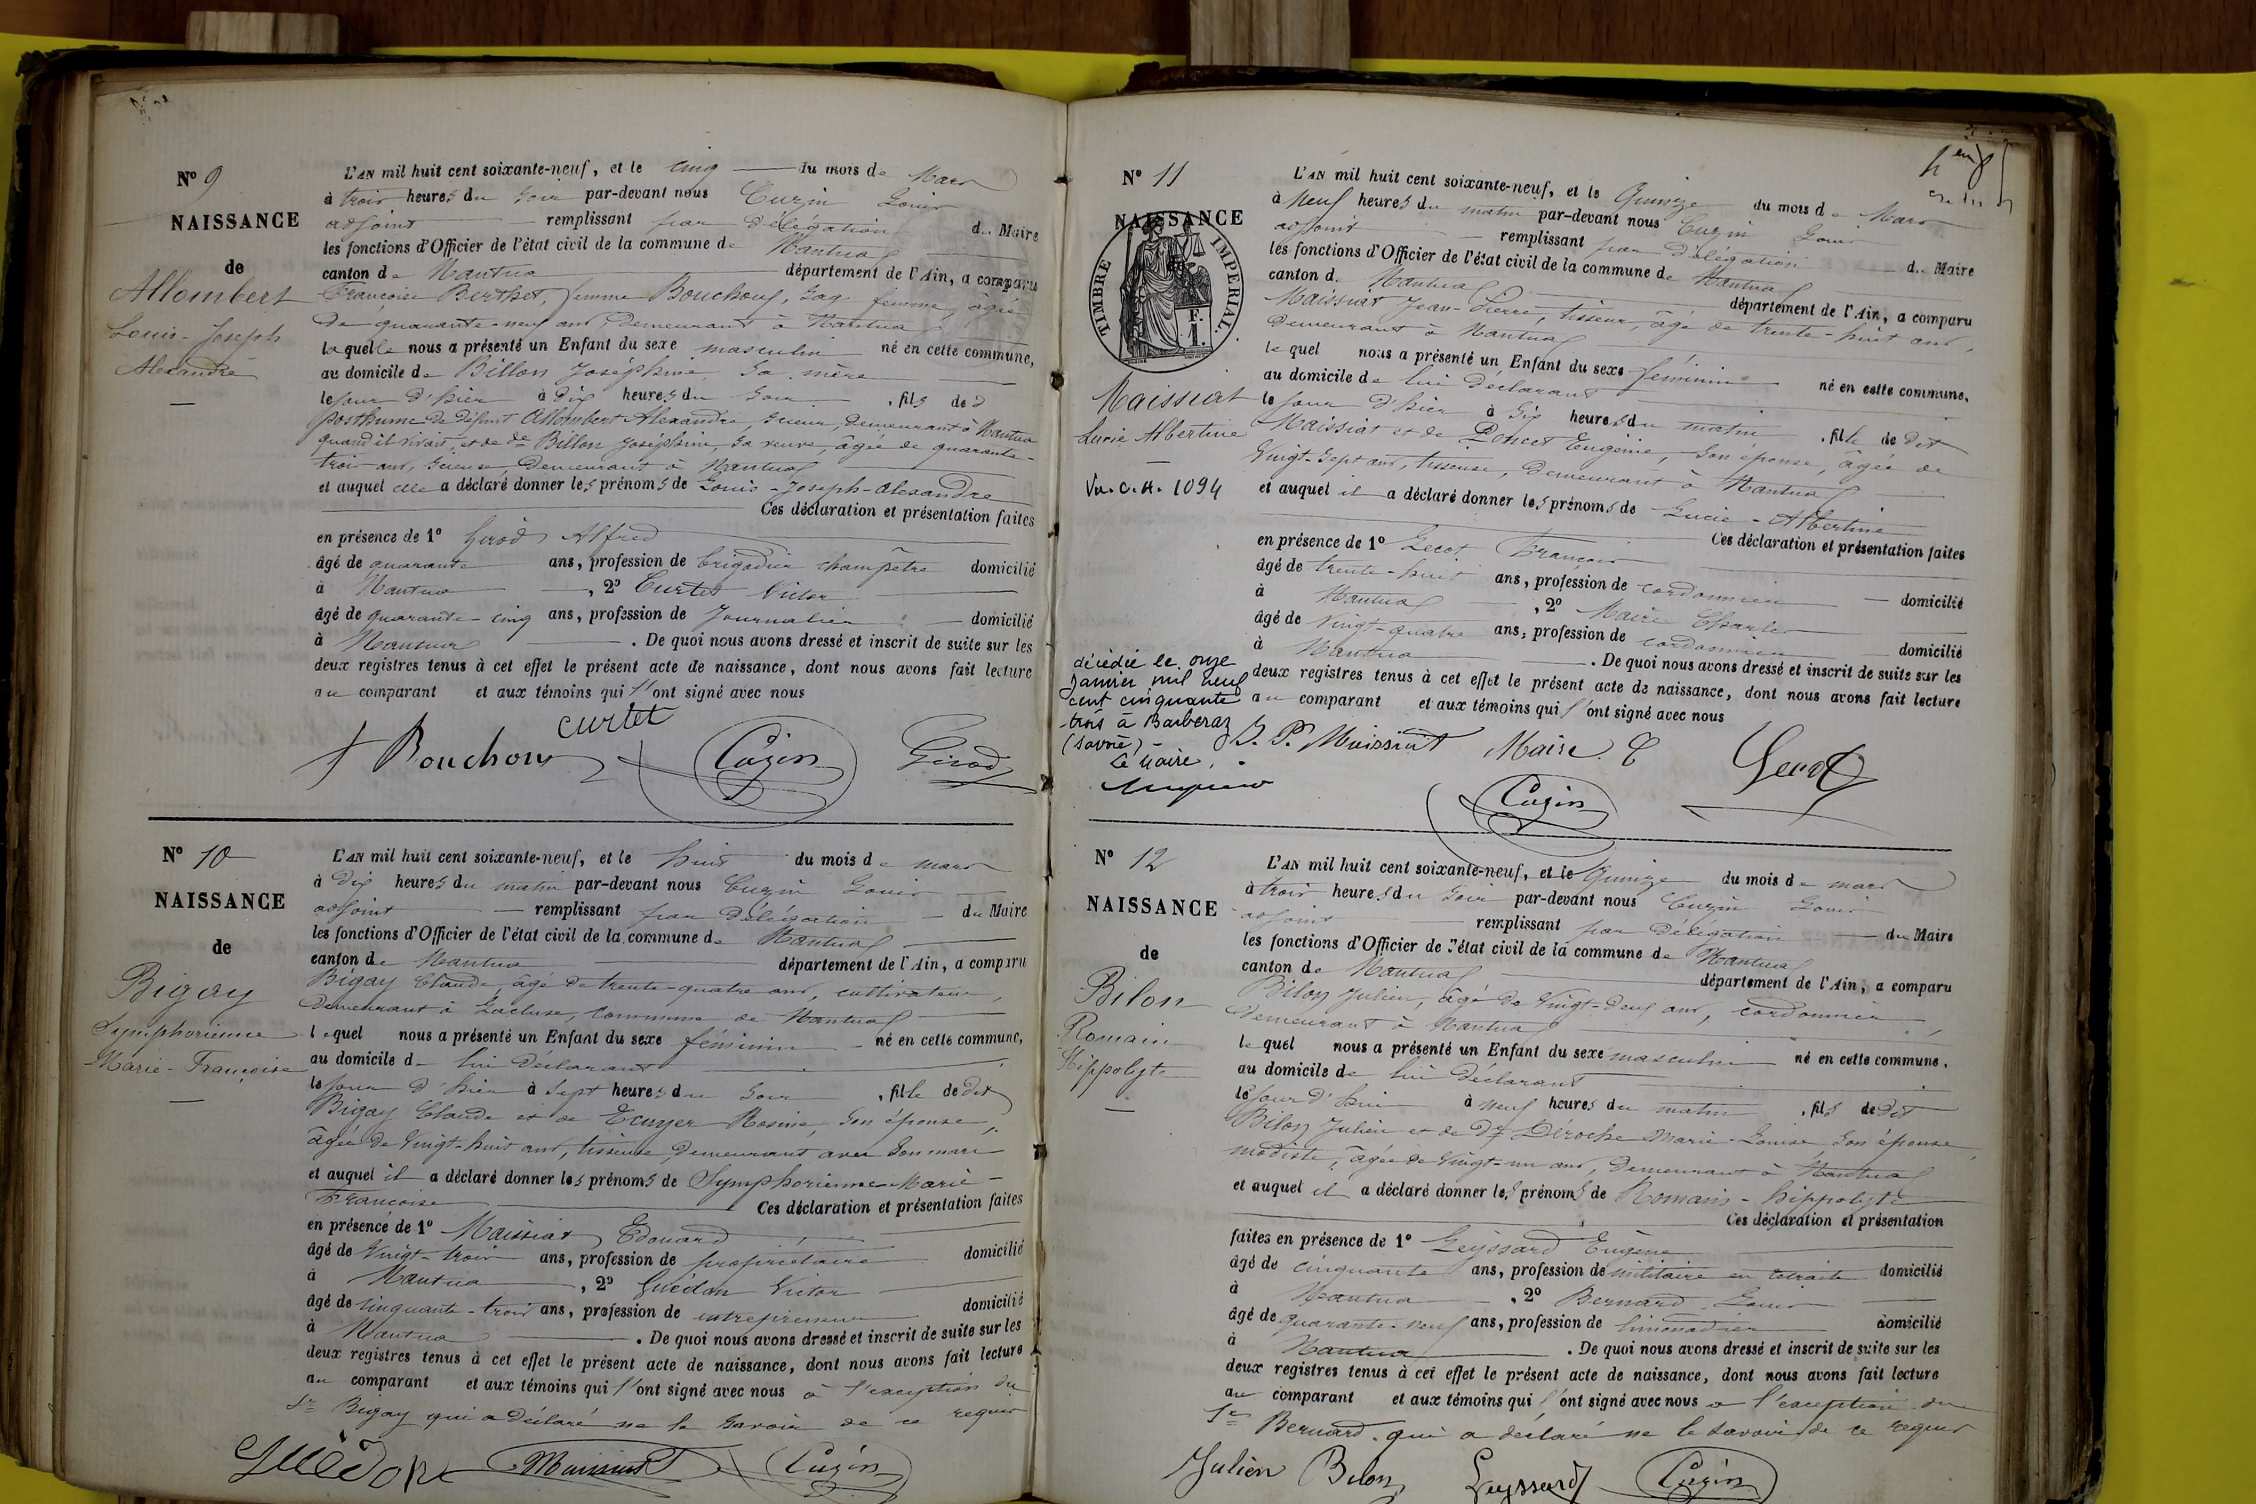 N° 9
NAISSANCE
de
Allombert
Louis-Joseph
Alexandre
L'AN mil huit cent soixante-neuf, et le cinq du mois de Mars
à trois heures du soir par-devant nous Cuzin Louis
adjoint remplissant par délégation du Maire
les fonctions d'Officier de l'état civil de la commune de Nantua
canton de Nantua département de l'Ain, a comparu
Françoise Berthet, femme Bouchoux, sage femme, âgée
de quarante-neuf ans, demeurant à Nantua
laquelle nous a présenté un Enfant du sexe masculin né en cette commune,
au domicile de Billon Joséphine, sa mère
le jour d'hier à dix heures du soir, fils de
posthume de défunt Allombert Alexandre, scieur, demeurant à Nantua
quand il vivait, et de de Billon Joséphine, sa veuve, âgée de quarante-
trois ans, demeurant à Nantua
et auquel elle a déclaré donner les prénoms de Louis-Joseph-Alexandre
Ces déclaration et présentation faites
en présence de 1° Girod Alfred
âgé de quarante ans, profession de brigadier champêtre domicilié
à Nantua, 2° Curtet Victor
âgé de quarante-cinq ans, profession de Journalier domicilié
à Nantua. De quoi nous avons dressé et inscrit de suite sur les
deux registres tenus à cet effet le présent acte de naissance, dont nous avons fait lecture
au comparant et aux témoins qui l'ont signé avec nous
curtet
f Bouchoux Cuzin Girod
N° 10
NAISSANCE
de
Bigay
Symphorienne
Marie-Françoise
L'AN mil huit cent soixante-neuf, et le huit du mois de mars
à dix heures du matin par-devant nous Cuzin Louis
adjoint remplissant par délégation du Maire
les fonctions d'Officier de l'état civil de la commune de Nantua
canton de Nantua département de l'Ain, a comparu
Bigay Claude, âgé de trente-quatre ans, cultivateur,
demeurant à Lacluse, commune de Nantua
lequel nous a présenté un Enfant du sexe féminin né en cette commune,
au domicile de lui déclarant
le jour d'hier à sept heures du soir, fille de dit
Bigay Claude et de Ecuyer Rosine, son épouse,
âgée de vingt-huit ans, tisseuse, demeurant avec son mari
et auquel il a déclaré donner les prénoms de Symphorienne-Marie-
Françoise Ces déclaration et présentation faites
en présence de 1° Maissiat Edouard
âgé de vingt-trois ans, profession de propriétaire domicilié
à Nantua, 2° Guédon Victor
âgé de cinquante-trois ans, profession de entrepreneur domicilié
à Nantua. De quoi nous avons dressé et inscrit de suite sur les
deux registres tenus à cet effet le présent acte de naissance, dont nous avons fait lecture
au comparant et aux témoins qui l'ont signé avec nous à l'exception du
Sr Bigay qui a déclaré ne le savoir de ce requis
Guédon Maissiat Cuzin
N° 11
NAISSANCE
TIMBRE IMPERIAL
F.
1.
Maissiat
Lucie Albertine
Vu. C. H. 1094
L'AN mil huit cent soixante-neuf, et le Quinze du mois de Mars
à Neuf heures du matin par-devant nous Cuzin Louis
adjoint remplissant par délégation du Maire
les fonctions d'Officier de l'état civil de la commune de Nantua
canton de Nantua département de l'Ain, a comparu
Maissiat Jean-Pierre, tisseur, âgé de trente-huit ans,
demeurant à Nantua
lequel nous a présenté un Enfant du sexe féminin né en cette commune,
au domicile de lui déclarant
le jour d'hier à six heures du matin, fille de dit
Maissiat et de Poncet Eugénie, son épouse, âgée de
vingt-sept ans, tisseuse, demeurant à Nantua
et auquel il a déclaré donner les prénoms de Lucie-Albertine
Ces déclaration et présentation faites
en présence de 1° Lecot François
âgé de trente-huit ans, profession de cordonnier domicilié
à Nantua, 2° Maire Charles
âgé de vingt-quatre ans, profession de cordonnier domicilié
à Nantua. De quoi nous avons dressé et inscrit de suite sur les
deux registres tenus à cet effet le présent acte de naissance, dont nous avons fait lecture
au comparant et aux témoins qui l'ont signé avec nous
décédée le onze
Janvier mil neuf
cent cinquante
trois à Barberaz
(Savoie)
Le Maire,
J. P. Maissiat Maire C Lecot
Cuzin
N° 12
NAISSANCE
de
Bilon
Romain
Hippolyte
L'AN mil huit cent soixante-neuf, et le Quinze du mois de mars
à trois heures du soir par-devant nous Cuzin Louis
adjoint remplissant par délégation du Maire
les fonctions d'Officier de l'état civil de la commune de Nantua
canton de Nantua département de l'Ain, a comparu
Bilon Julien, âgé de vingt-deux ans, cordonnier,
demeurant à Nantua
lequel nous a présenté un Enfant du sexe masculin né en cette commune,
au domicile de lui déclarant
le jour d'hui à neuf heures du matin, fils de dit
Bilon Julien et de de Déroche Marie-Louise, son épouse,
modiste, âgée de vingt-un ans, demeurant à Nantua
et auquel il a déclaré donner les prénoms de Romain-hippolyte
Ces déclaration et présentation
faites en présence de 1° Leyssard Eugène
âgé de cinquante ans, profession de militaire en retraite domicilié
à Nantua, 2° Bernard Louis
âgé de quarante-neuf ans, profession de limonadier domicilié
à Nantua. De quoi nous avons dressé et inscrit de suite sur les
deux registres tenus à cet effet le présent acte de naissance, dont nous avons fait lecture
au comparant et aux témoins qui l'ont signé avec nous à l'exception du
Sr Bernard qui a déclaré ne le savoir de ce requis
Julien Bilon Leyssard Cuzin